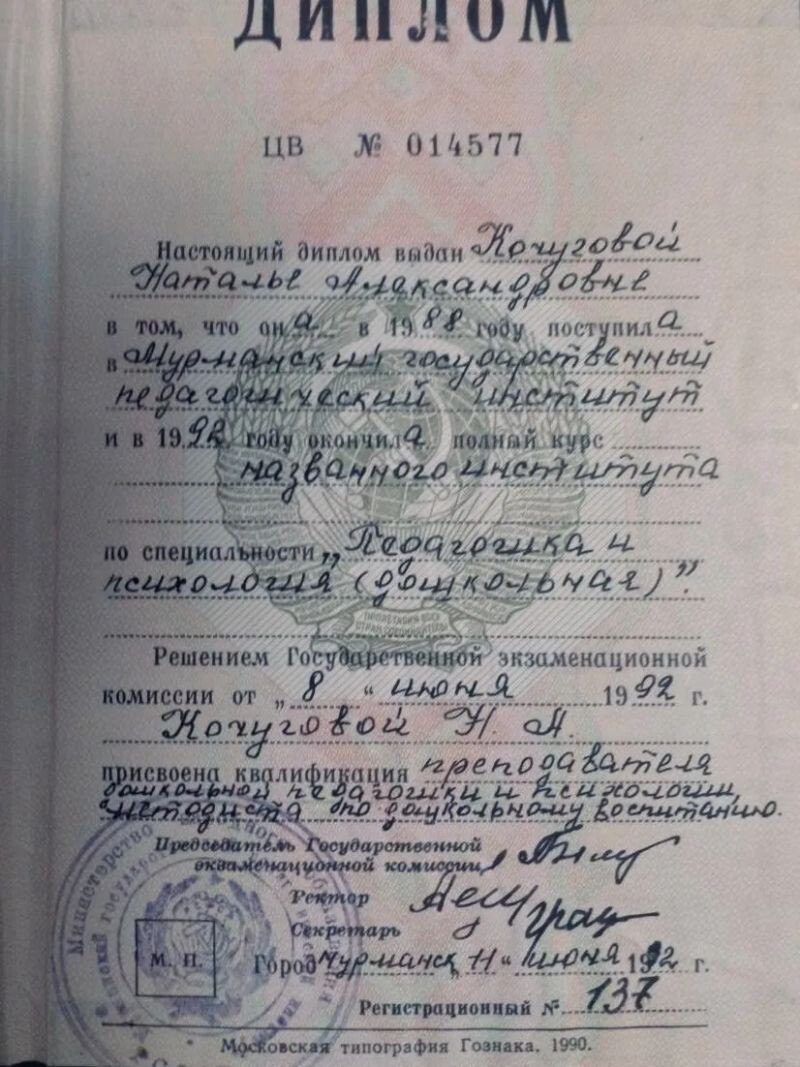 ДИПЛОМ
ЦВ № 014577
Настоящий диплом выдан Кочуговой
Наталье Александровне
в том, что она в 1988 году поступила
в Мурманский государственный
педагогический институт
и в 1992 году окончила полный курс
названного института
по специальности „Педагогика и
психология (дошкольная)”.
ПРОЛЕТАРИИ ВСЕХ
СТРАН СОЕДИНЯЙТЕСЬ
Решением Государственной экзаменационной
комиссии от „8“ июня 1992 г.
Кочуговой Н. А.
присвоена квалификация преподавателя
дошкольной педагогики и психологии,
методиста по дошкольному воспитанию.
Председатель Государственной
экзаменационной комиссии
Ректор
Секретарь
М. П.
Город Мурманск „11“ июня 1992 г.
Регистрационный № 137
Московская типография Гознака. 1990.
Министерство образования